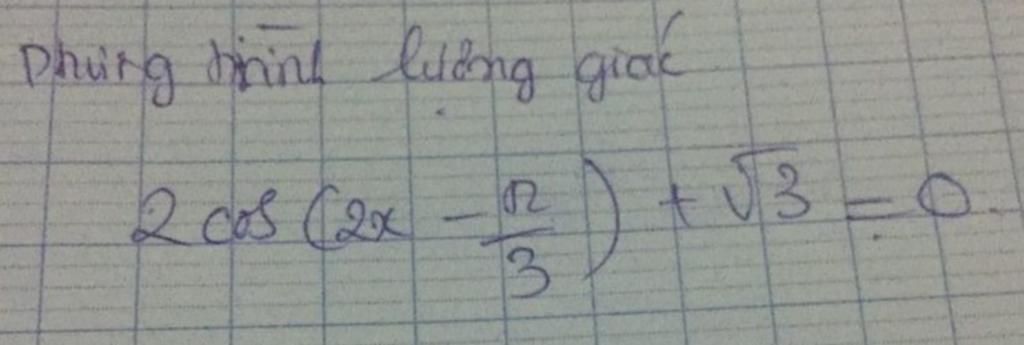 Phương trình lượng giác
2 cos (2x - π/3) + √3 = 0